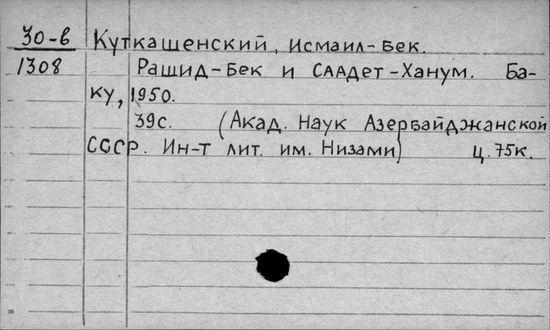 30-в Куткашенский, Исмаил-Бек.
1308 Рашид-Бек и Саадет-Ханум. Ба-
ку, 1950.
39с. (Акад. Наук Азербайджанской
СССР. Ин-т лит. им. Низами) ц. 75к.